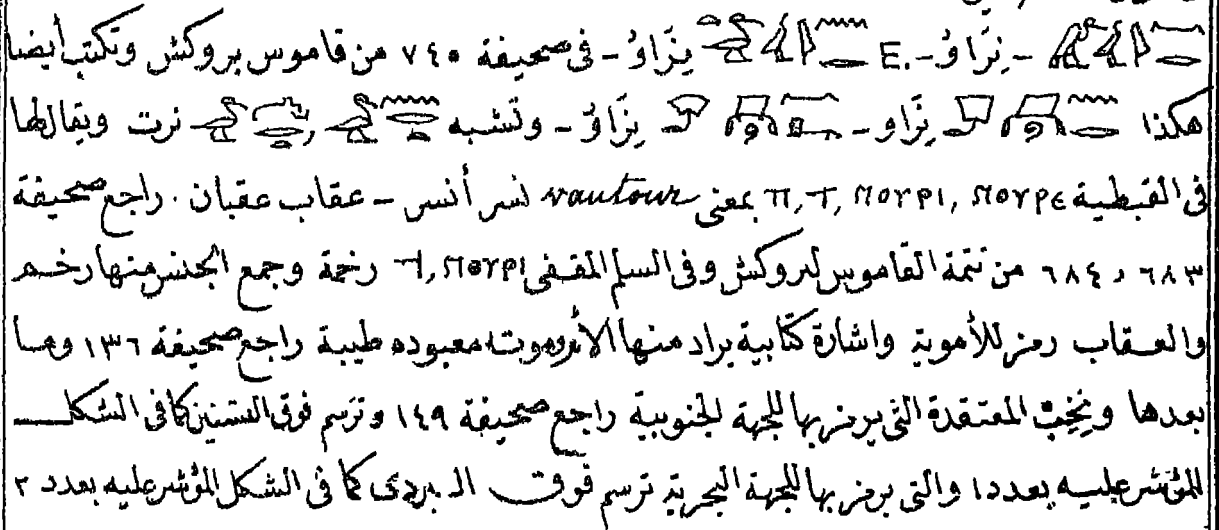 - نِرَّاوُ -.E نِرَّاوُ - فى صحيفة ٧٤٥ من قاموس بروكش وتكتب أيضا
هكذا نِرَّاو - نِرَّاوُ - وتشبه نرت ويقال لها
فى القبطية π, τ, ⲛⲟⲩⲣⲓ, ⲛⲟⲩⲣⲉ بمعنى vautour نسر أنسر - عقاب عقبان . راجع صحيفة
٦٨٣ و ٦٨٤ من تتمة القاموس لبروكش وفى السلم المقفى ϯ, ⲛⲟⲩⲣⲓ رخمة وجمع الجنس منها رخم
والعقاب رمز للأموية واشارة كتابية يراد منها الأم وموت معبوده طيبة راجع صحيفة ١٣٦ وما
بعدها ونخب المعتقدة التى يرمز بها للجهة الجنوبية راجع صحيفة ١٤٩ وترسم فوق كما فى الشكل
المؤشر عليه بعدد ١ والتى يرمز بها للجهة البحرية ترسم فوق البردى كما فى الشكل المؤشر عليه بعدد ٢